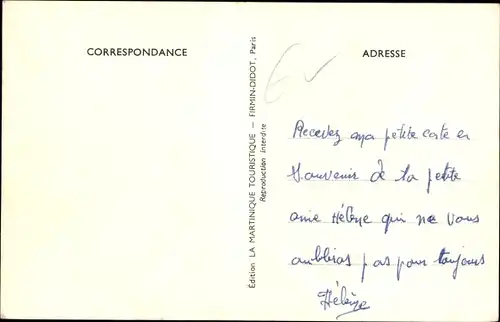 CORRESPONDANCE
Édition LA MARTINIQUE TOURISTIQUE — FIRMIN-DIDOT, Paris
Reproduction interdite
ADRESSE
Recevez ma petite carte en
Souvenir de la petite
amie Hélène qui ne vous
oubliras pas pour toujours
Hélène